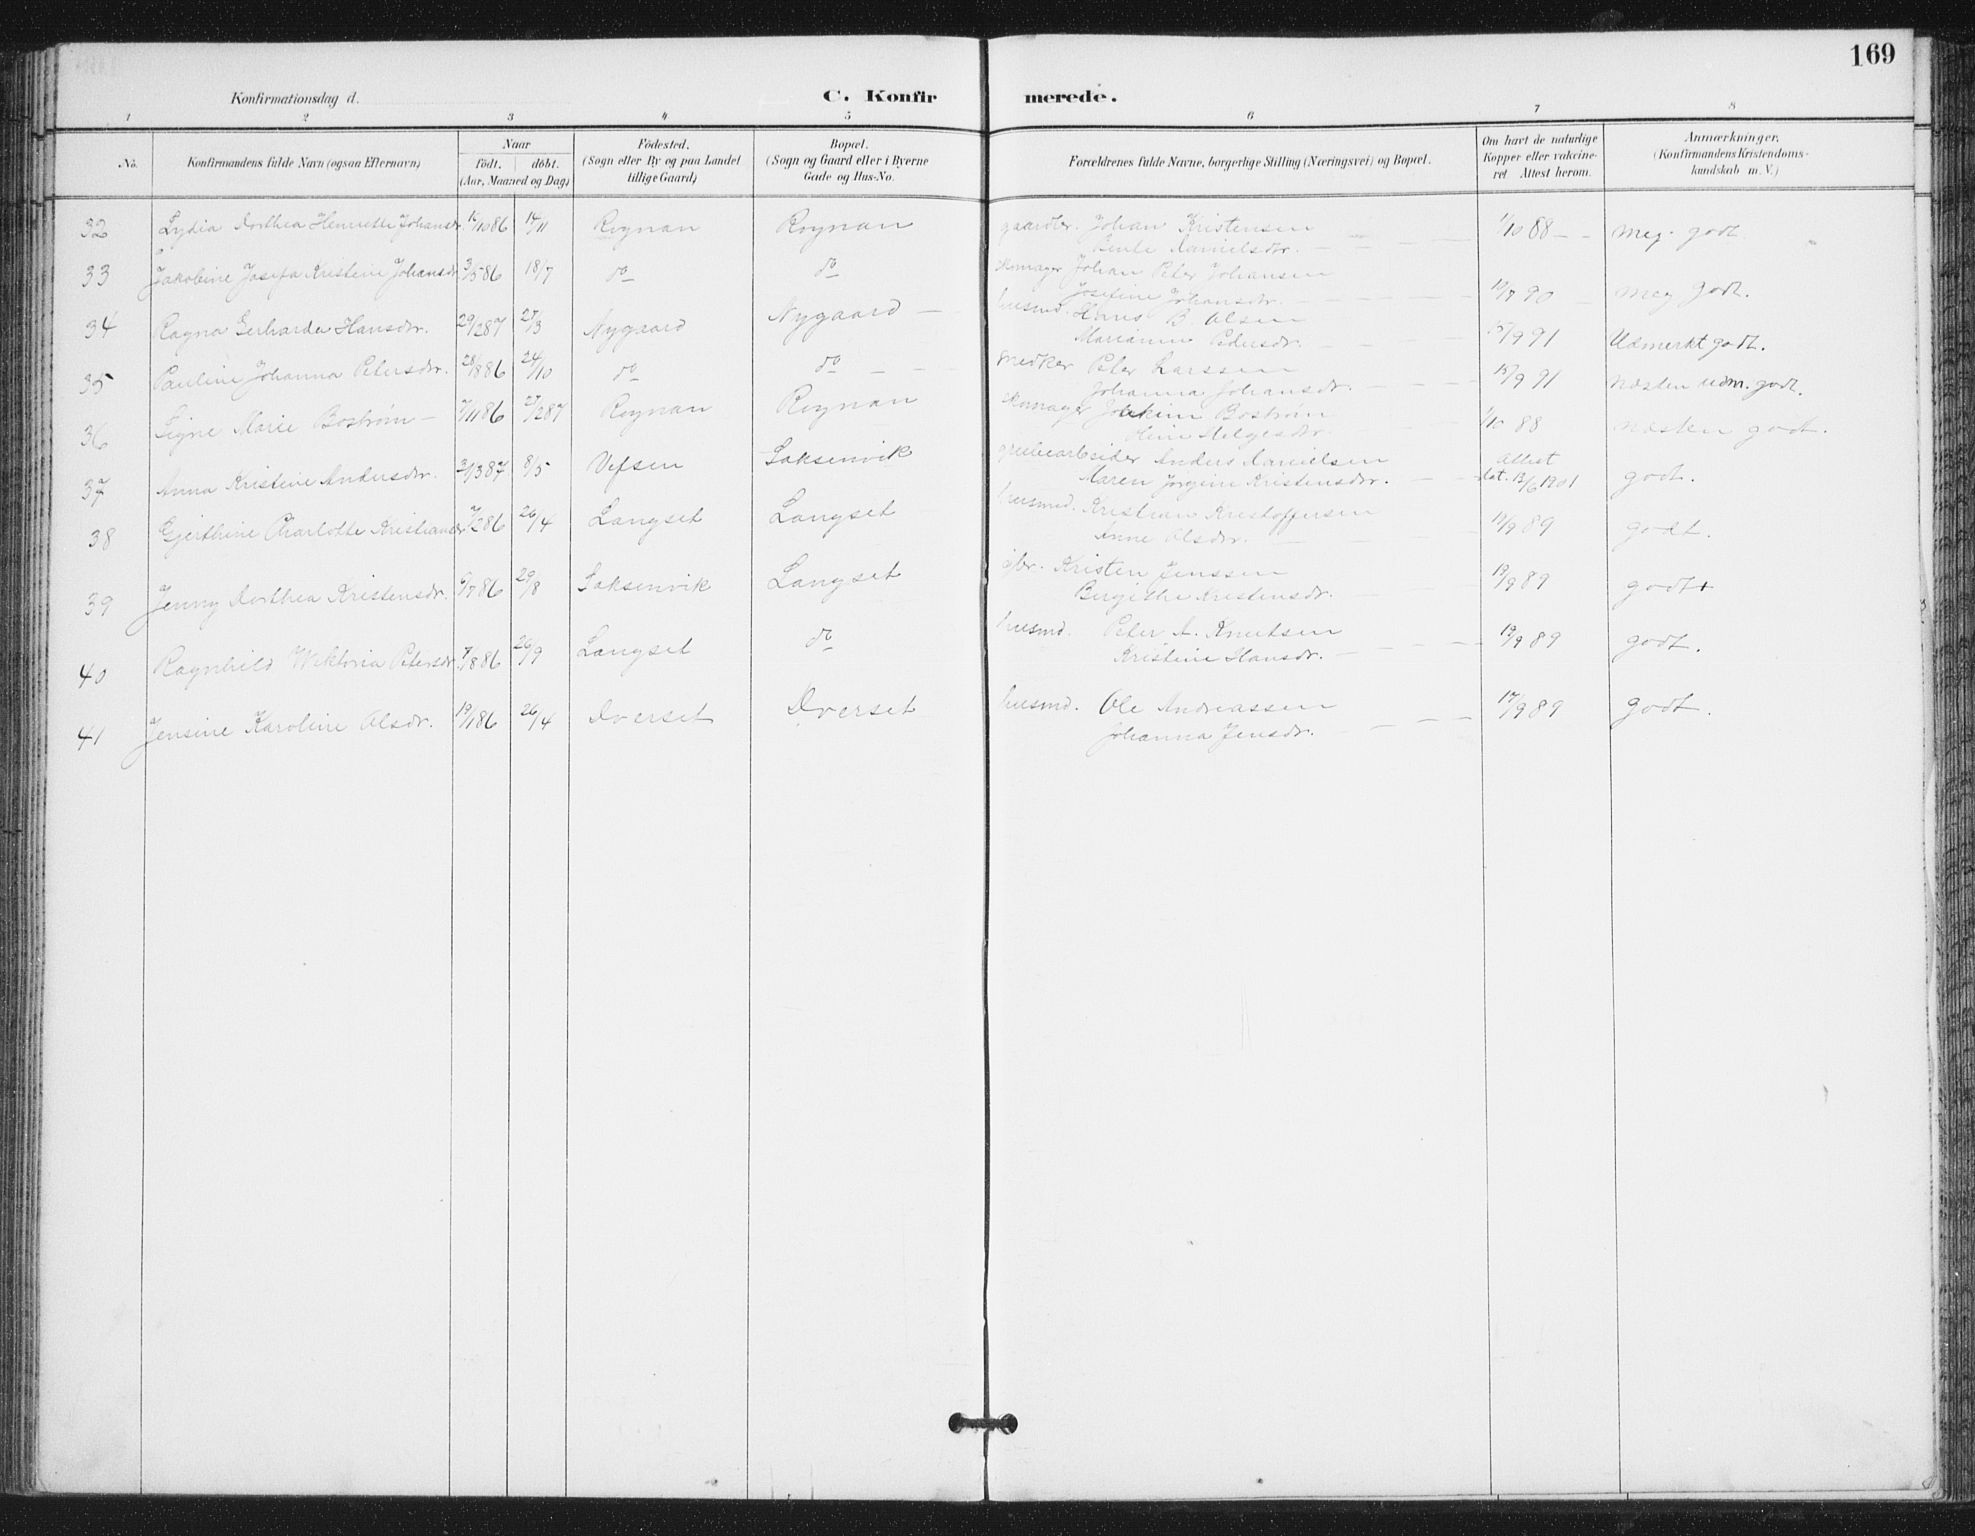 169
Konfirmationsdag d.
C. Konfirmerede.
1 2 3 4 5 6 7 8
No. Konfirmandens fulde Navn (ogsaa Efternavn) Naar født. døbt. (Aar, Maaned og Dag) Födested. (Sogn eller By og paa Landet tillige Gaard) Bopæl. (Sogn og Gaard eller i Byerne Gade og Hus-No. Forældrenes fulde Navne, borgerlige Stilling (Næringsvei) og Bopæl. Om havt de naturlige Kopper eller vakcineret Attest herom. Anmærkninger. (Konfirmandens Kristendomskundskab m. V.)
32 Lydia Dorthea Henriette Johansdr. 15/10 86 14/11 Rognan Rognan gaardbr. Johan Kristensen 1/10 88 meg. godt
Danielsdr.
33 Jakobine Josefa Kristine Johansdr. 3/5 86 18/7 do do skomager Johan Peter Johansen 10/7 90 meg godt.
Josefine Johansdr.
34 Ragna Gerharda Hansdr. 29/1 287 27/3 Nygaard Nygaard husmd. Hans B. Olsen 15/9 91 Udmerkt godt.
Marianne Pedersdr.
35 Pauline Johanna Petersdr. 28/8 86 24/10 do do snedker Peter Larssen 15/9 91 næsten udm. godt.
Johanna Johansdr.
36 Signe Marie Bostrøm 7/11 86 27/2 87 Rognan Rognan skomager Joakim Bostrøm 1/10 88 næsten godt.
Helgesdr.
37 Anna Kristine Andersdr. 3/3 87 8/5 Vefsen Saksenvik grubearbeider Anders Danielsen Attest dat. 13/6 1901 godt.
Maren Jörgine Kristensdr.
38 Gjerthine Charlotte Kristiansdr. 7/2 86 26/4 Langset Langset husmd. Kristian Kristoffersen 19/9 89 godt.
Anne Olsdr.
39 Jenny Dorthea Kristensdr. 6/7 86 29/8 Saksenvik Langset gbr. Kristen Jenssen 19/9 89 godt
Birgithe Kristensdr.
40 Ragnhild Viktoria Petersdr. 7/8 86 26/9 Langset do husmd. Peter A. Knutsen 19/9 89 godt.
Kristine Hansdr.
41 Jensine Karoline Olsdr. 19/1 86 26/4 Dverset Dverset husmd. Ole Andreassen 17/9 89 godt.
Johanna Jensdr.